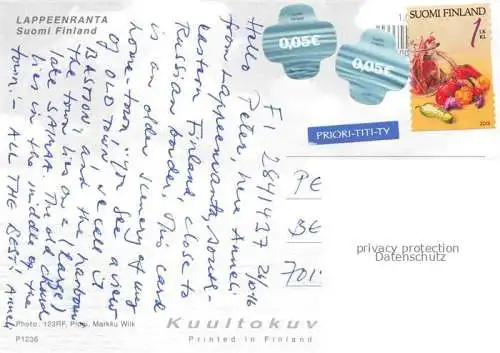 LAPPEENRANTA
Suomi Finland
0,05€
0,05€
SUOMI FINLAND
1 LK KL
2015
PRIORI-TITI-TY
FI 2841437 26/0-16
Hello Peter, here Anneli
from Lappeenranta, south-
eastern Finland, close to
Russian border. This card
is an older scenery of my
home-town. You see a view
of OLD TOWN (we call it
BASTION) and the harbour.
The town lies on a (large)
lake SAIMAA. The old church
lies in the middle of the
town. - ALL THE BEST! Anneli
PE
BE
701
privacy protection
Datenschutz
Photo: 123RF, Markku Wilk
P1236
Kuultokuv
Printed in Finland